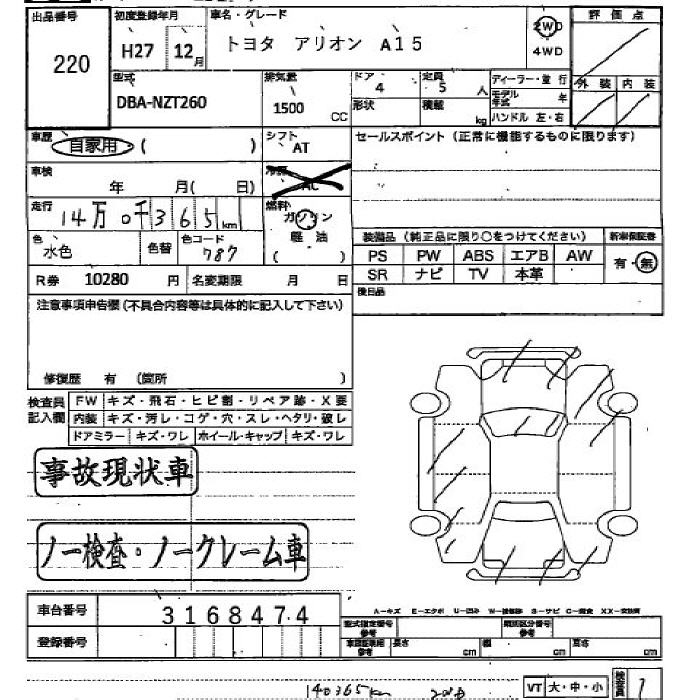 出品番号 初度登録年月 車名・グレード 2WD 評価点
220 H27 12月 トヨタ アリオン A15 4WD
型式 排気量 ドア 定員 ディーラー・並行 外装 内装
DBA-NZT260 1500 CC 4 5 人 モデル年式 年
形状 積載 kg ハンドル 左・右
車歴 自家用 ( ) シフト AT セールスポイント (正常に機能するものに限ります)
車検 年 月( 日) 冷房 AC
走行 14万0千365km 燃料 ガソリン
軽油
( )
色 水色 色替 色コード 787
装備品 (純正品に限り○をつけてください) 新車保証書
PS PW ABS エアB AW 有・無
SR ナビ TV 本革
R券 10280 円 名変期限 月 日 後日品
注意事項申告欄 (不具合内容等は具体的に記入して下さい)
修復歴 有 (箇所 )
検査員記入欄 FW キズ・飛石・ヒビ割・リペア跡・X要
内装 キズ・汚レ・コゲ・穴・スレ・ヘタリ・破レ
ドアミラー キズ・ワレ ホイール・キャップ キズ・ワレ
事故現状車
ノー検査・ノークレーム車
A-キズ E-エクボ U-凹み S-サビ C-腐食 XX-交換済
車台番号 3168474 型式指定番号 参考 類別区分番号 参考
登録番号 車両証明欄 参考 長さ cm 幅 cm 高さ cm
140365km VT 大・中・小